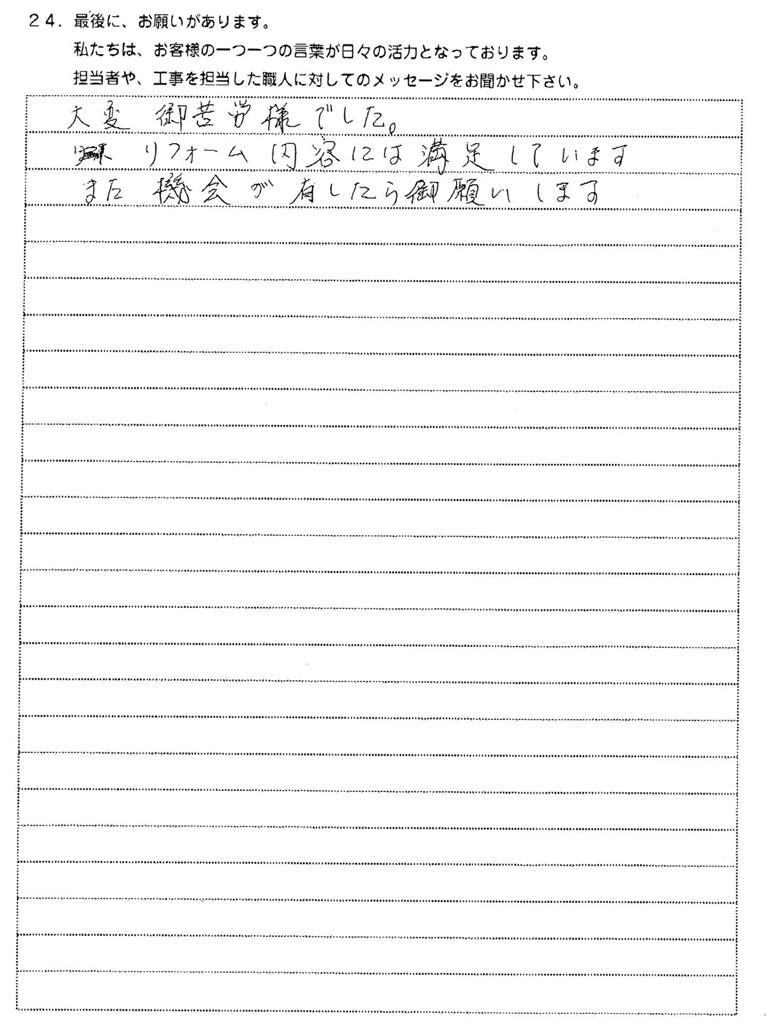 24．最後に、お願いがあります。
私たちは、お客様の一つ一つの言葉が日々の活力となっております。
担当者や、工事を担当した職人に対してのメッセージをお聞かせ下さい。
大変 御苦労様でした。
リフォーム内容には満足しています
また機会が有したら御願いします